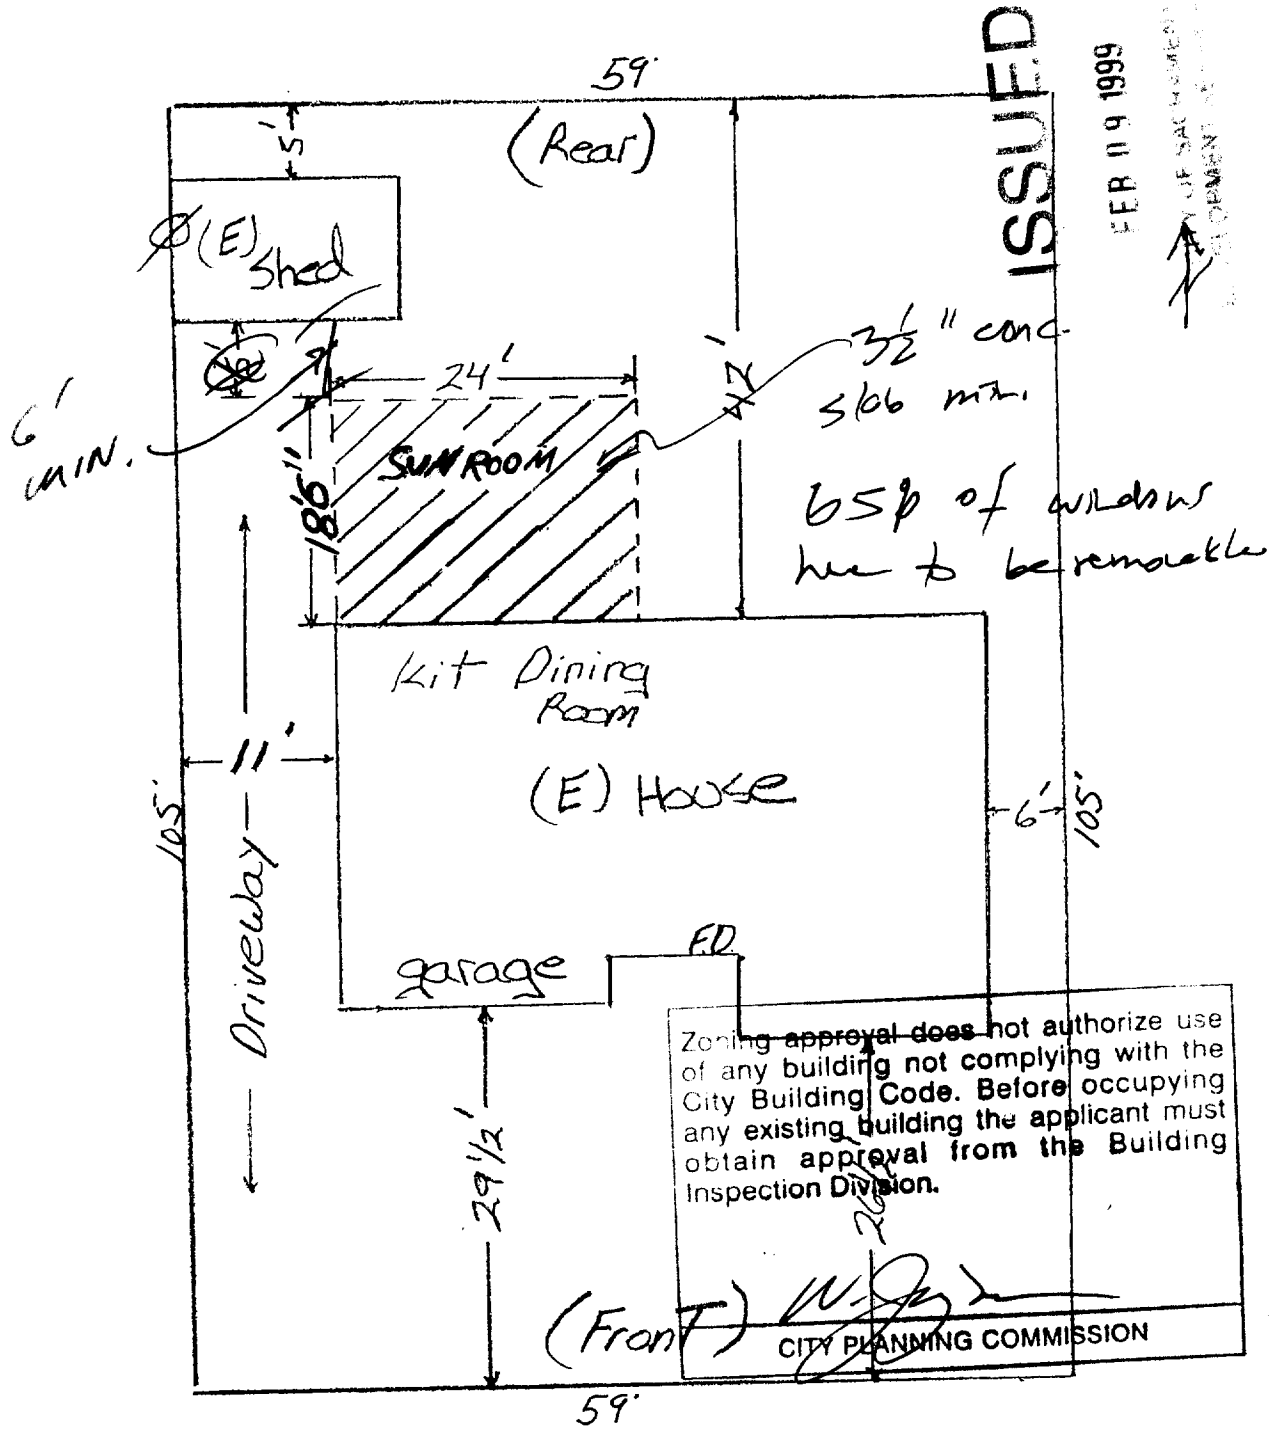 59'
ISSUED
FEB 09 1999
5'
(Rear)
(E)
Shed
6'
MIN.
24'
42'
3½" conc.
slab min.
SUNROOM
18'6"
of windows
to be removable
Kit Dining
Room
(E) House
11'
6'
105'
105'
Driveway
garage
F.D.
29½'
26½'
Zoning approval does not authorize use
of any building not complying with the
City Building Code. Before occupying
any existing building the applicant must
obtain approval from the Building
Inspection Division.
(Front)
CITY PLANNING COMMISSION
59'